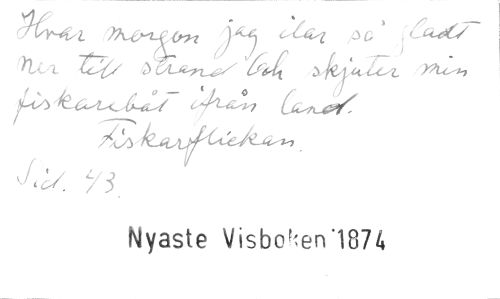 Hvar morgon jag ilar så gladt
ner till strand Och skjuter min
fiskarebåt ifrån land.
Fiskarflickan.
Sid. 43.
Nyaste Visboken 1874